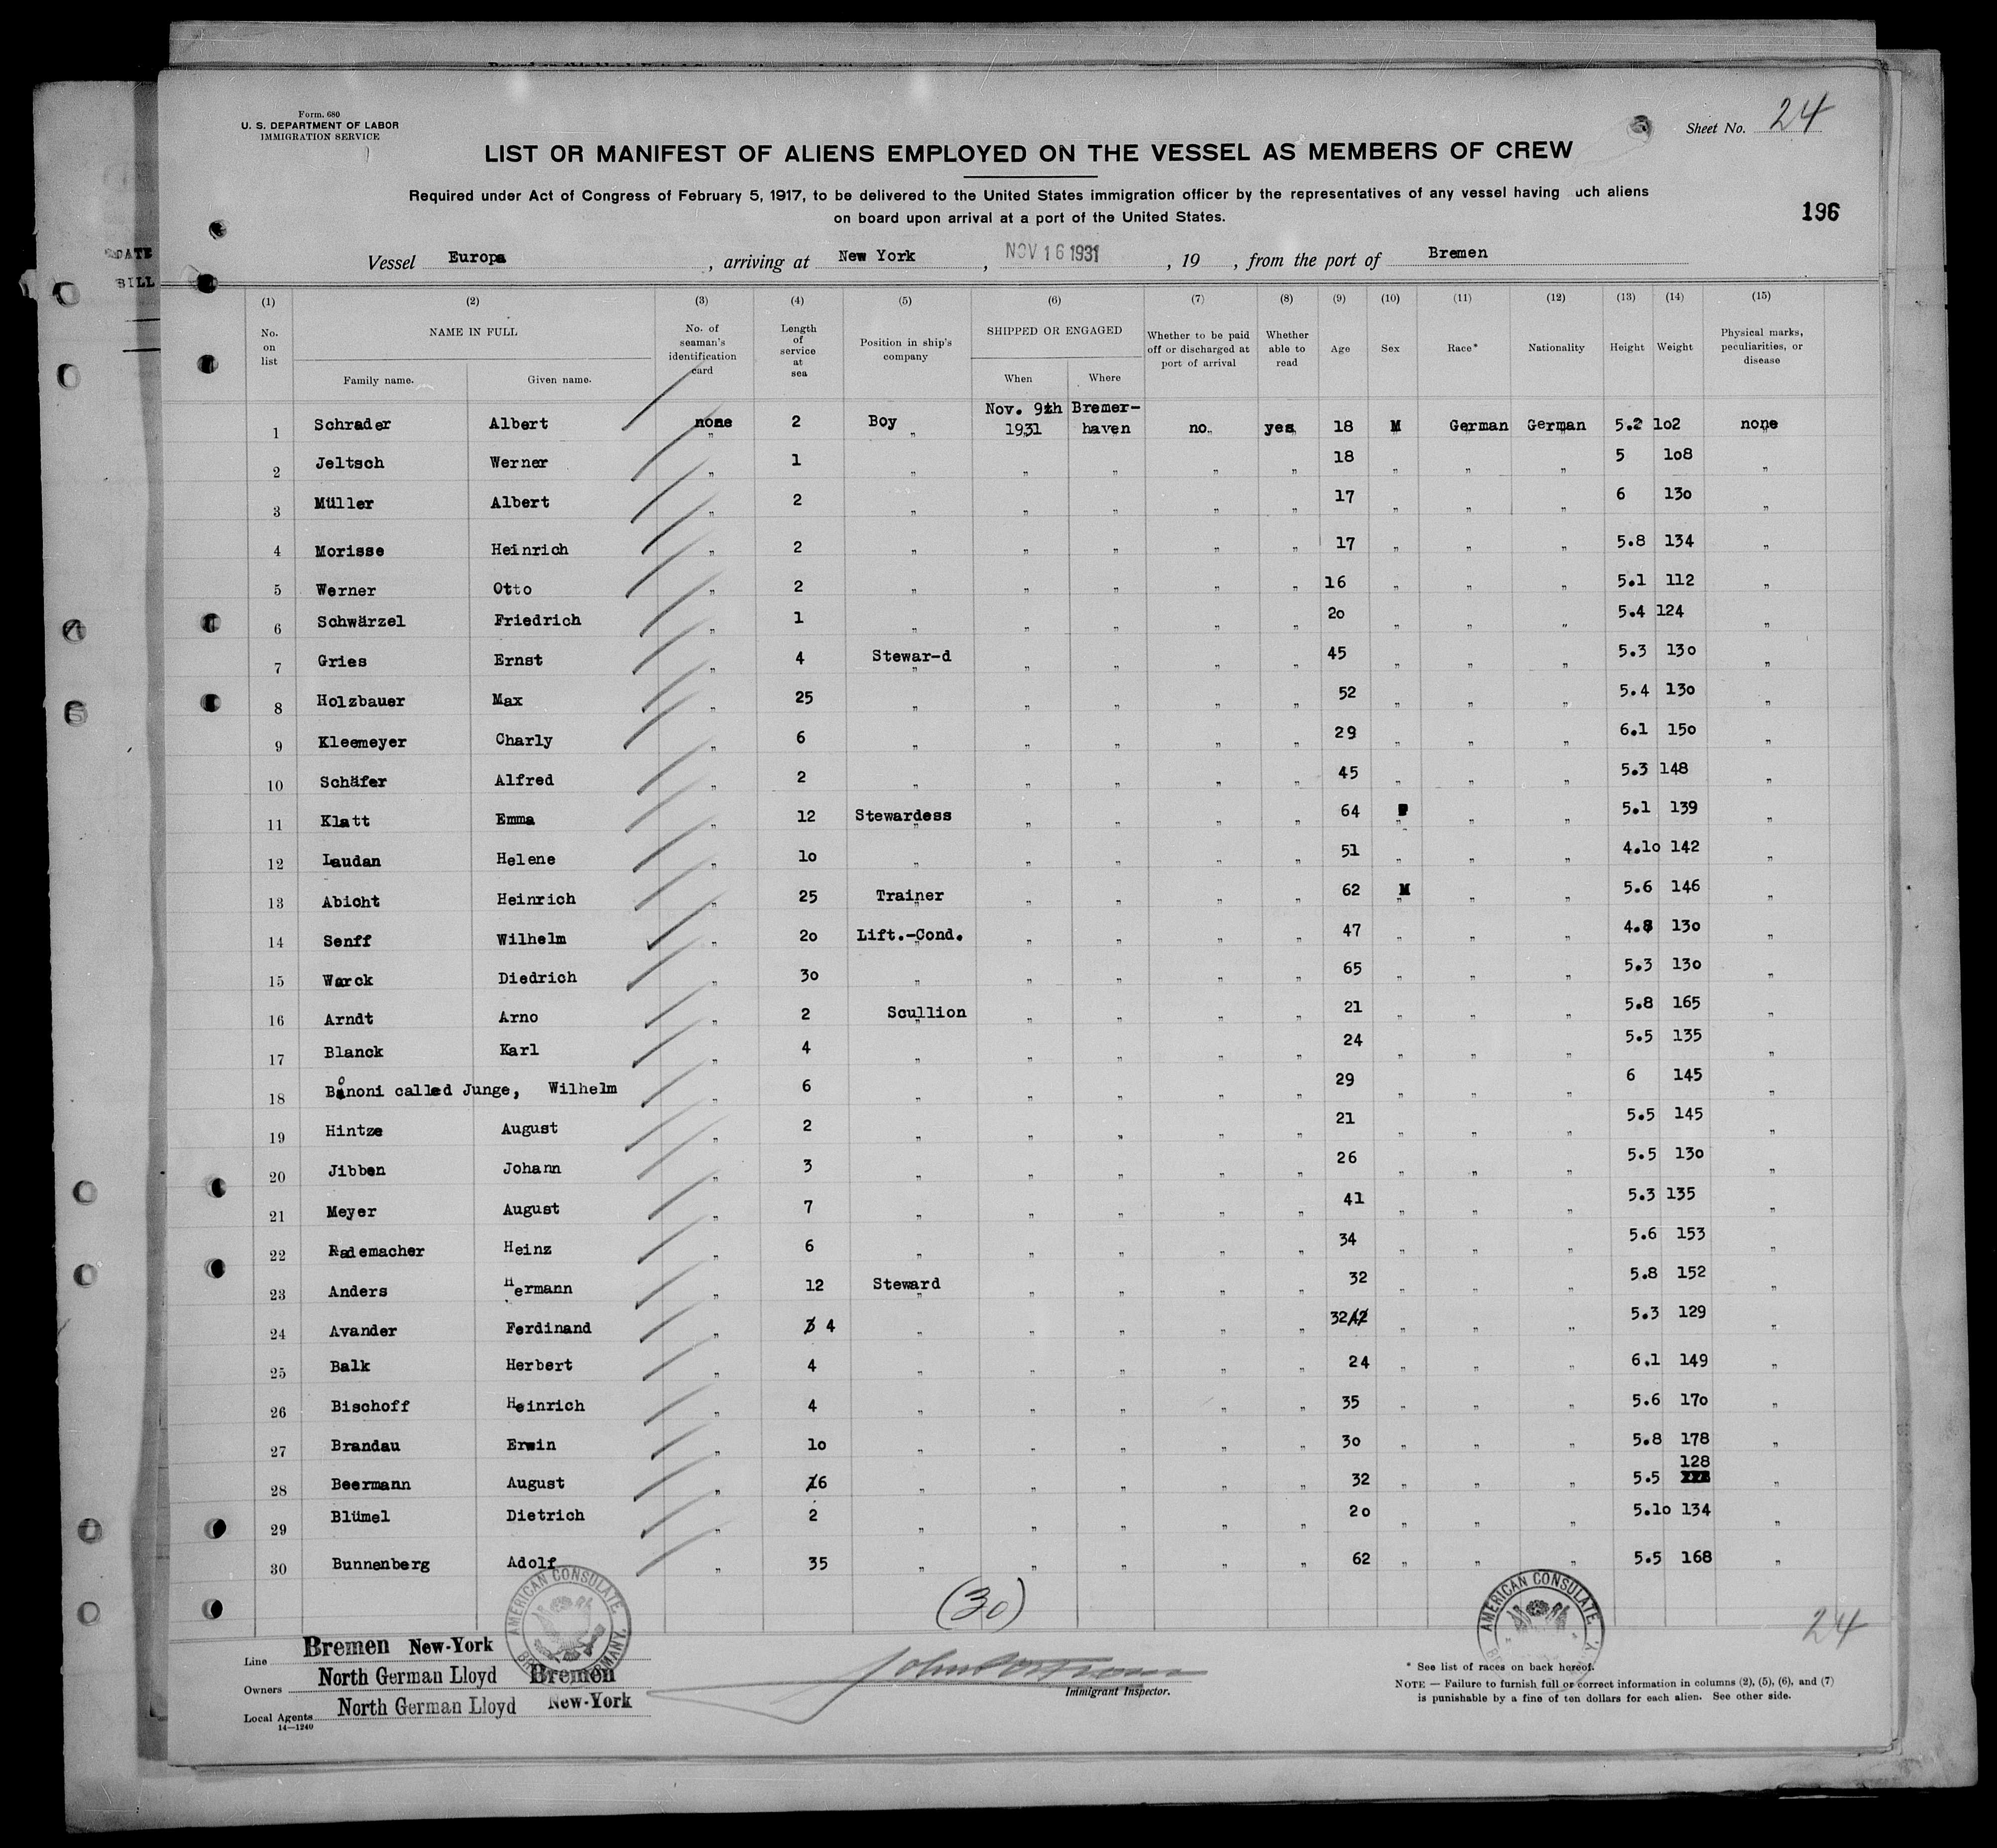 DATE
BILL
Form. 680
U. S. DEPARTMENT OF LABOR
IMMIGRATION SERVICE
Sheet No. 24
LIST OR MANIFEST OF ALIENS EMPLOYED ON THE VESSEL AS MEMBERS OF CREW
Required under Act of Congress of February 5, 1917, to be delivered to the United States immigration officer by the representatives of any vessel having uch aliens
on board upon arrival at a port of the United States.
196
Vessel Europa, arriving at New York, NOV 16 1931, 19 , from the port of Bremen
(1) (2) (3) (4) (5) (6) (7) (8) (9) (10) (11) (12) (13) (14) (15)
No. on list NAME IN FULL Family name. Given name. No. of seaman's identification card Length of service at sea Position in ship's company SHIPPED OR ENGAGED When Where Whether to be paid off or discharged at port of arrival Whether able to read Age Sex Race* Nationality Height Weight Physical marks, peculiarities, or disease
1 Schrader Albert none 2 Boy Nov. 9th 1931 Bremer-haven no. yes 18 M German German 5.2 102 none
2 Jeltsch Werner „ 1 „ „ „ „ „ 18 „ „ „ 5 108 „
3 Müller Albert „ 2 „ „ „ „ „ 17 „ „ „ 6 130 „
4 Morisse Heinrich „ 2 „ „ „ „ „ 17 „ „ „ 5.8 134 „
5 Werner Otto „ 2 „ „ „ „ „ 16 „ „ „ 5.1 112 „
6 Schwärzel Friedrich „ 1 „ „ „ „ „ 20 „ „ „ 5.4 124 „
7 Gries Ernst „ 4 Stewar-d „ „ „ „ 45 „ „ „ 5.3 130 „
8 Holzbauer Max „ 25 „ „ „ „ „ 52 „ „ „ 5.4 130 „
9 Kleemeyer Charly „ 6 „ „ „ „ „ 29 „ „ „ 6.1 150 „
10 Schäfer Alfred „ 2 „ „ „ „ „ 45 „ „ „ 5.3 148 „
11 Klatt Emma „ 12 Stewardess „ „ „ „ 64 F „ „ 5.1 139 „
12 Laudan Helene „ 10 „ „ „ „ „ 51 „ „ „ 4.10 142 „
13 Abicht Heinrich „ 25 Trainer „ „ „ „ 62 M „ „ 5.6 146 „
14 Senff Wilhelm „ 20 Lift.-Cond. „ „ „ „ 47 „ „ „ 4.8 130 „
15 Warck Diedrich „ 30 „ „ „ „ „ 65 „ „ „ 5.3 130 „
16 Arndt Arno „ 2 Scullion „ „ „ „ 21 „ „ „ 5.8 165 „
17 Blanck Karl „ 4 „ „ „ „ „ 24 „ „ „ 5.5 135 „
18 Bononi called Junge, Wilhelm „ 6 „ „ „ „ „ 29 „ „ „ 6 145 „
19 Hintze August „ 2 „ „ „ „ „ 21 „ „ „ 5.5 145 „
20 Jibben Johann „ 3 „ „ „ „ „ 26 „ „ „ 5.5 130 „
21 Meyer August „ 7 „ „ „ „ „ 41 „ „ „ 5.3 135 „
22 Rademacher Heinz „ 6 „ „ „ „ „ 34 „ „ „ 5.6 153 „
23 Anders Hermann „ 12 Steward „ „ „ „ 32 „ „ „ 5.8 152 „
24 Avander Ferdinand „ 3 4 „ „ „ „ „ 32 42 „ „ „ 5.3 129 „
25 Balk Herbert „ 4 „ „ „ „ „ 24 „ „ „ 6.1 149 „
26 Bischoff Heinrich „ 4 „ „ „ „ „ 35 „ „ „ 5.6 170 „
27 Brandau Erwin „ 10 „ „ „ „ „ 30 „ „ „ 5.8 178 „
28 Beermann August „ 6 „ „ „ „ „ 32 „ „ „ 5.5 128 „
29 Blümel Dietrich „ 2 „ „ „ „ „ 20 „ „ „ 5.10 134 „
30 Bunnenberg Adolf „ 35 „ „ „ „ „ 62 „ „ „ 5.5 168 „
(30)
24
AMERICAN CONSULATE
AMERICAN CONSULATE
Line Bremen New-York
Owners North German Lloyd Bremen
Local Agents North German Lloyd New-York
14—1240
Immigrant Inspector.
* See list of races on back hereof.
NOTE — Failure to furnish full or correct information in columns (2), (5), (6), and (7)
is punishable by a fine of ten dollars for each alien. See other side.